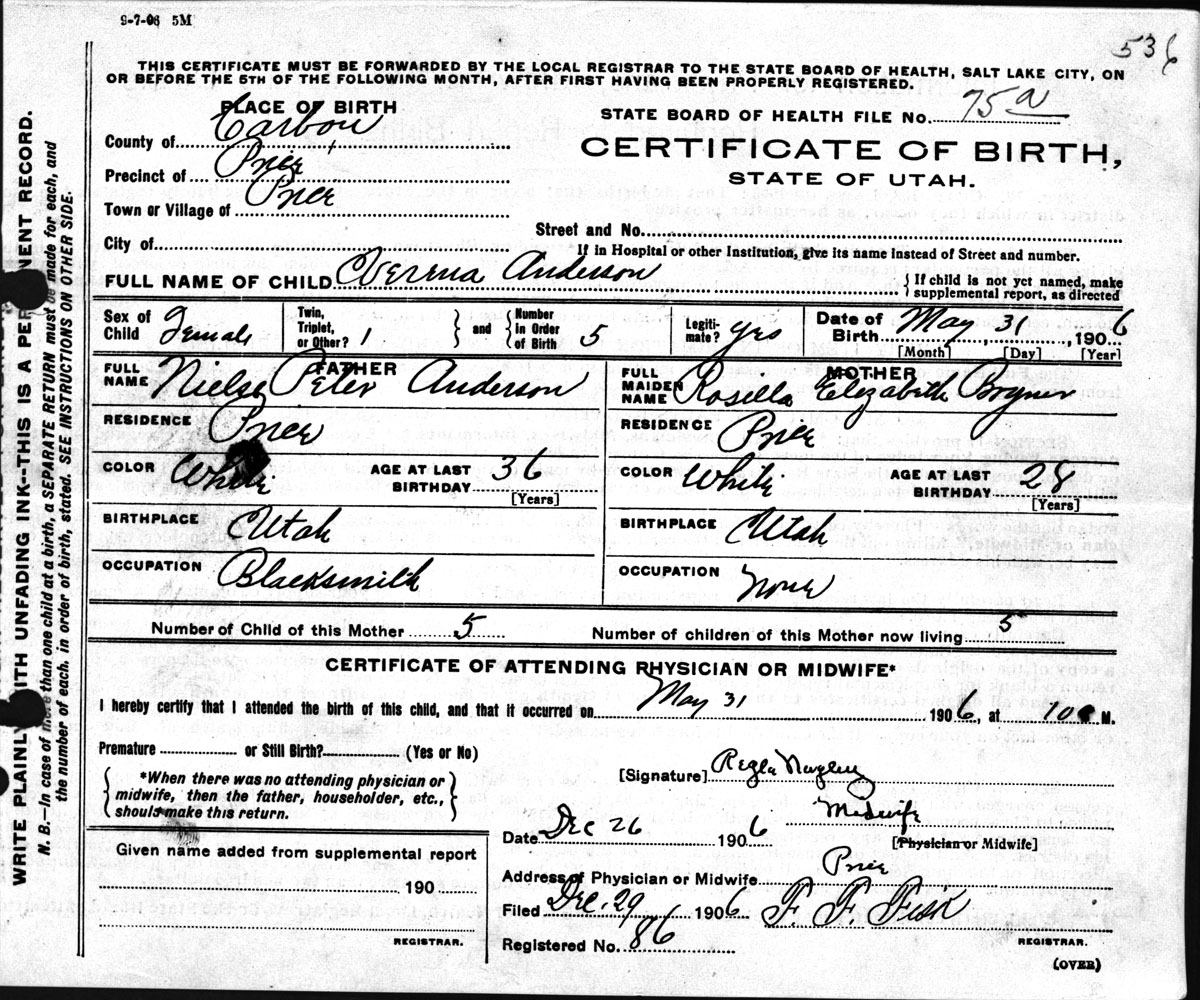 9-7-06 5M
536
THIS CERTIFICATE MUST BE FORWARDED BY THE LOCAL REGISTRAR TO THE STATE BOARD OF HEALTH, SALT LAKE CITY, ON
OR BEFORE THE 5TH OF THE FOLLOWING MONTH, AFTER FIRST HAVING BEEN PROPERLY REGISTERED.
PLACE OF BIRTH
County of Carbon
Precinct of Price
Town or Village of Price
City of
STATE BOARD OF HEALTH FILE No. 75a
CERTIFICATE OF BIRTH,
STATE OF UTAH.
Street and No.
If in Hospital or other Institution, give its name instead of Street and number.
FULL NAME OF CHILD Verena Anderson
If child is not yet named, make
supplemental report, as directed
Sex of Child Female
Twin, Triplet, or Other? 1
and
Number in Order of Birth 5
Legitimate? yes
Date of Birth May 31, 1906
[Month] [Day] [Year]
FATHER
FULL NAME Niels Peter Anderson
RESIDENCE Price
COLOR White
AGE AT LAST BIRTHDAY 36
[Years]
BIRTHPLACE Utah
OCCUPATION Blacksmith
MOTHER
FULL MAIDEN NAME Rosella Elizabeth
RESIDENCE Price
COLOR White
AGE AT LAST BIRTHDAY 28
[Years]
BIRTHPLACE Utah
OCCUPATION None
Number of Child of this Mother 5
Number of children of this Mother now living 5
CERTIFICATE OF ATTENDING PHYSICIAN OR MIDWIFE*
I hereby certify that I attended the birth of this child, and that it occurred on May 31 1906, at 10 M.
Premature or Still Birth? (Yes or No)
*When there was no attending physician or
midwife, then the father, householder, etc.,
should make this return.
[Signature]
Midwife
Date Dec 26 1906
[Physician or Midwife]
Address of Physician or Midwife Price
Filed Dec. 29 1906 F. F. Fisk
REGISTRAR.
Registered No. 86
(OVER)
Given name added from supplemental report
190
REGISTRAR.
WRITE PLAINLY WITH UNFADING INK--THIS IS A PERMANENT RECORD.
N. B.—In case of more than one child at a birth, a SEPARATE RETURN must be made for each, and
the number of each, in order of birth, stated. SEE INSTRUCTIONS ON OTHER SIDE.